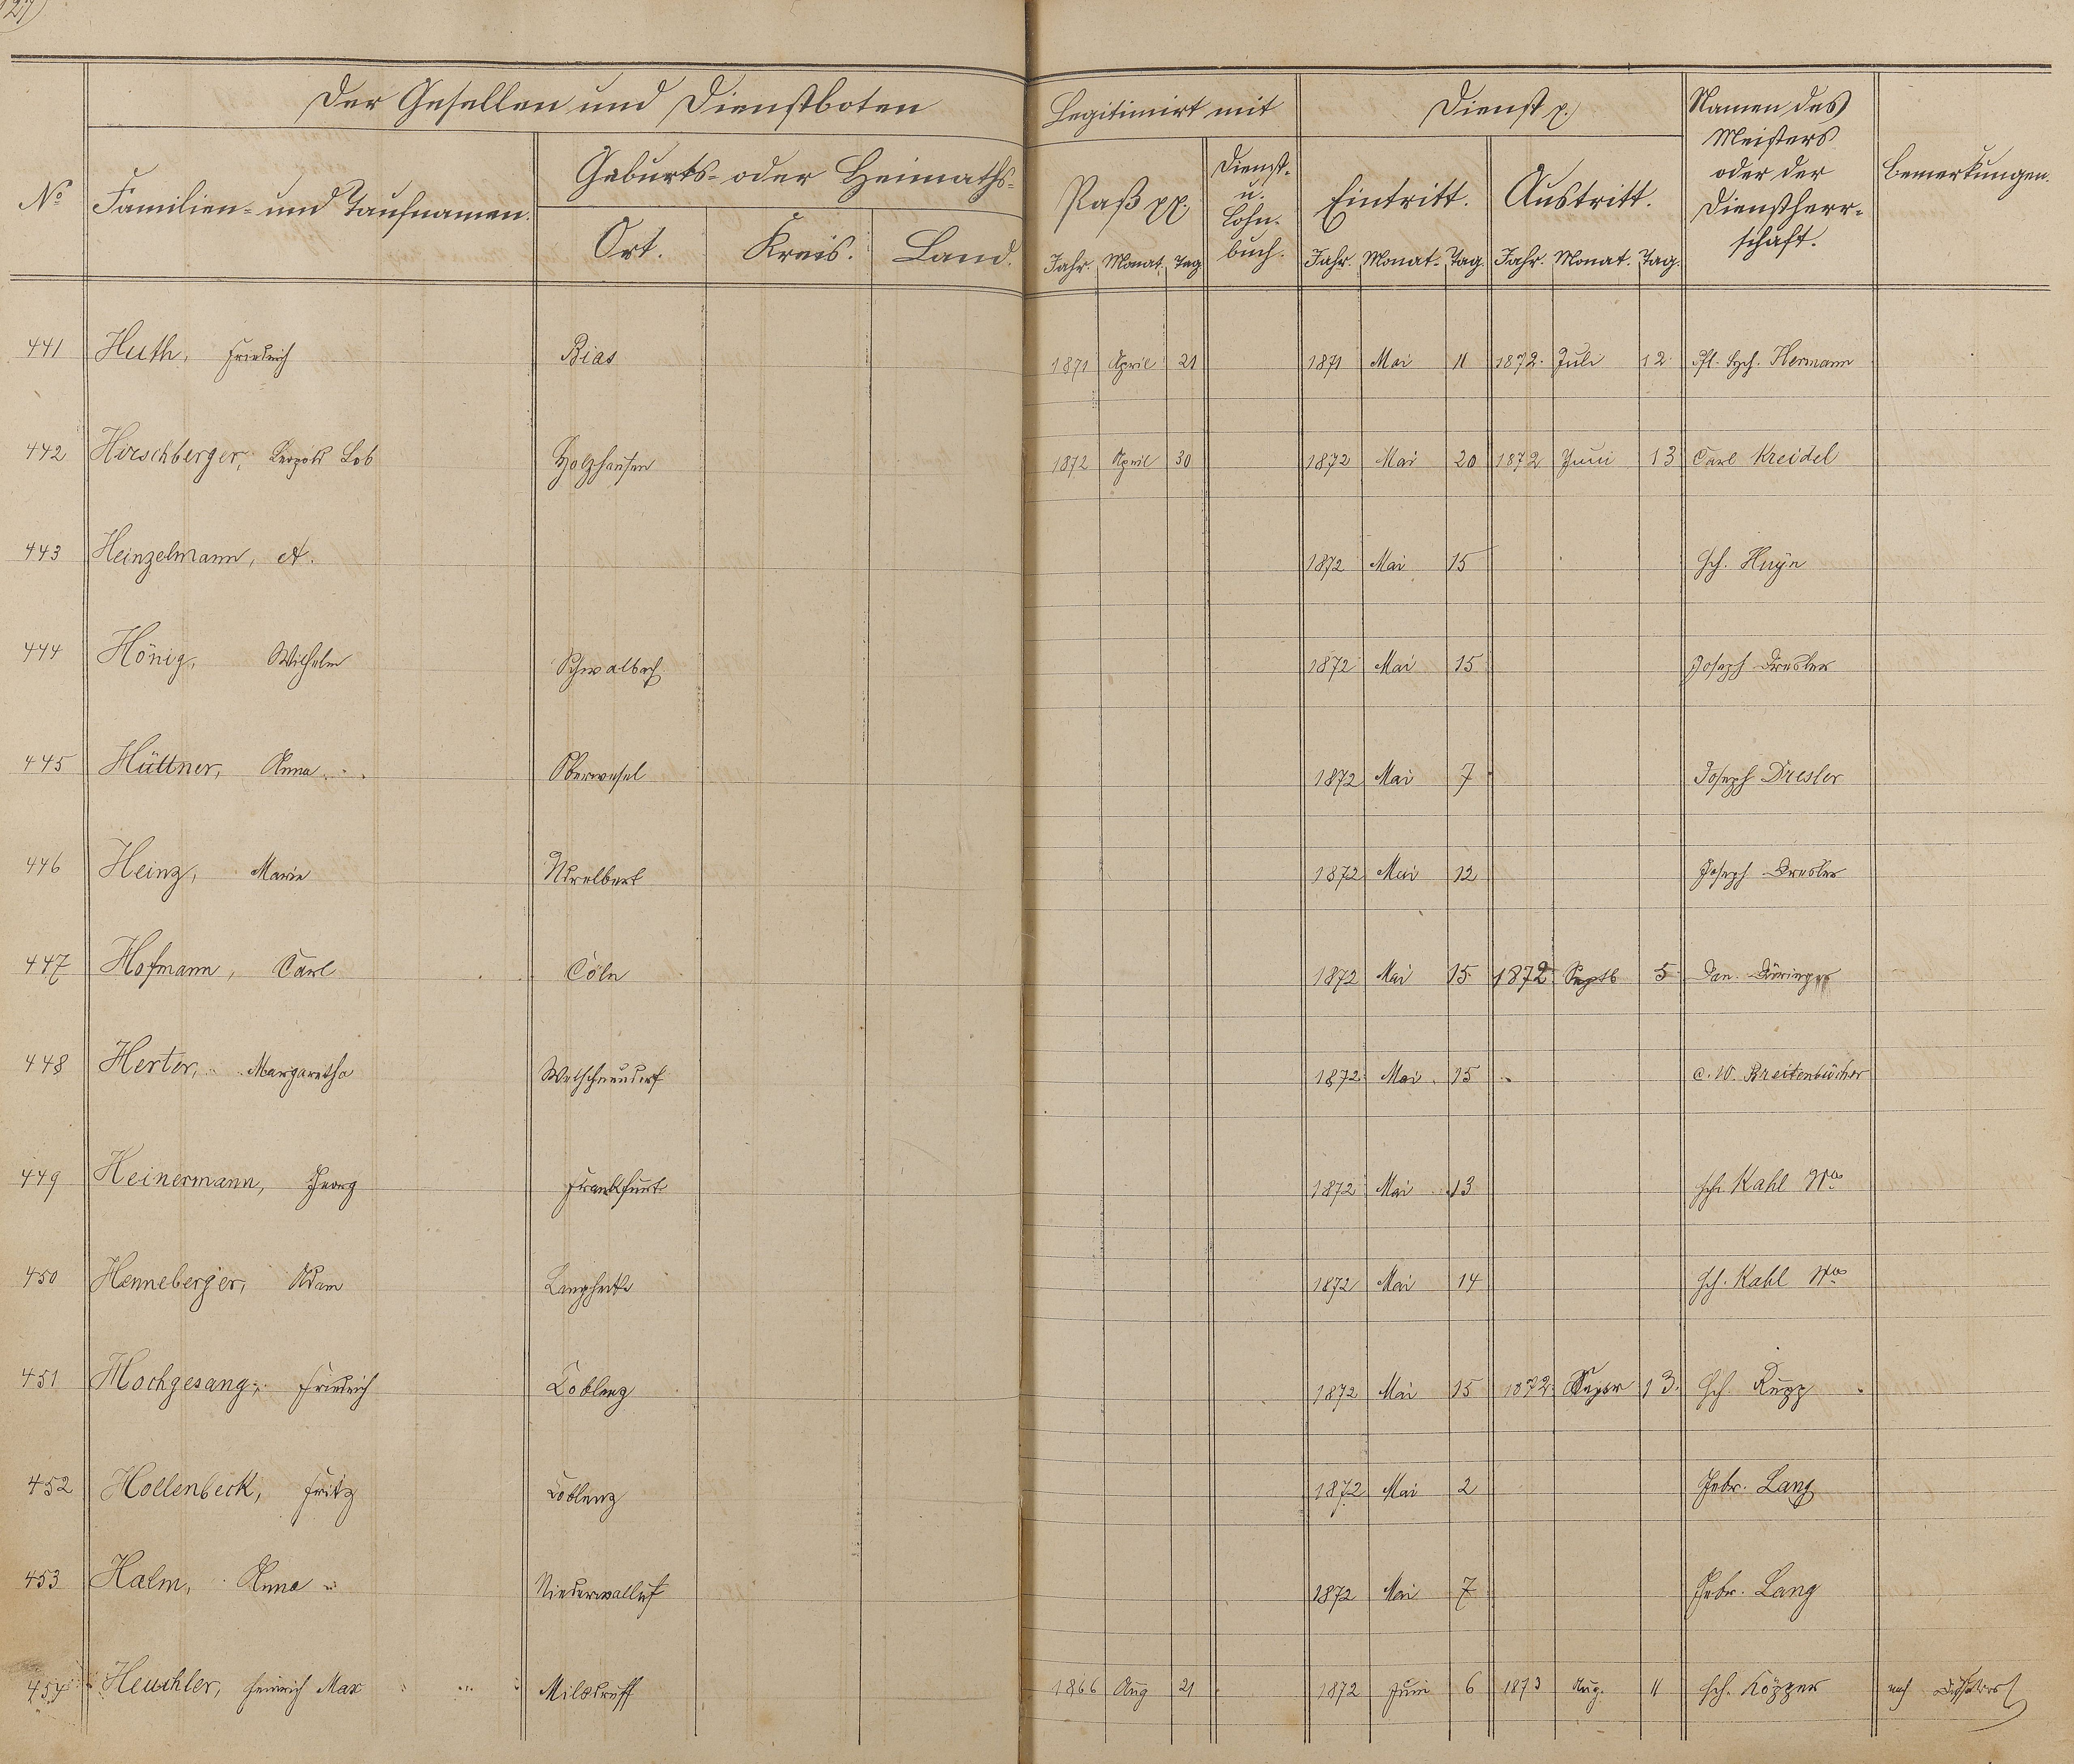 127)
Der Gesellen und Dienstboten Legitimirt mit Dienst p.) Namen des
Meisters
oder der
Dienstherr-
schaft. Bemerkungen.
No Familien- und Taufnamen. Geburts- oder Heimaths- Paß pp. Dienst-
u.
Lohn-
buch. Eintritt. Austritt.
Ort. Kreis. Land. Jahr. Monat. Tag Jahr. Monat. Tag. Jahr. Monat. Tag.
441 Huth, Friedrich Bias 1871 April 21 1871 Mai 11 1872. Juli 12. Hermann
442 Hirschberger, Leopold Lob Holzhausen 1872 April 30 1872 Mai 20 1872 Juni 13 Carl Kreidel
443 Heinzelmann, A. 1872 Mai 15 Hch. Huyn
444 Hönig, Wilhelm Schwalbach 1872 Mai 15 Joseph Dresler
445 Hüttner, Anna Oberwesel 1872 Mai 7 Joseph Dresler
446 Heinz, Marie 1872 Mai 12 Joseph Dresler
447 Hofmann, Carl Cöln 1872 Mai 15 1872 Septb 5 Dan.
448 Herter, Margaretha Welschneudorf 1872 Mai 15 C. W. Breitenbücher
449 Heinermann, Georg Frankfurt 1872 Mai 13 Hch. Kahl Wwe
450 Henneberger, Adam 1872 Mai 14 Hch. Kahl Wwe
451 Hochgesang, Friedrich Coblenz 1872 Mai 15 1872. 13. Hch. Rupp
452 Hollenbeck, Fritz Coblenz 1872 Mai 2 Gebr. Lang
453 Halm, Anna Niederwalluf 1872 Mai 7 Gebr. Lang
454 Heuchler, Heinrich Max 1866 Aug 21 1872 Juni 6 1873 Aug. 11 Hch. Köpper nach